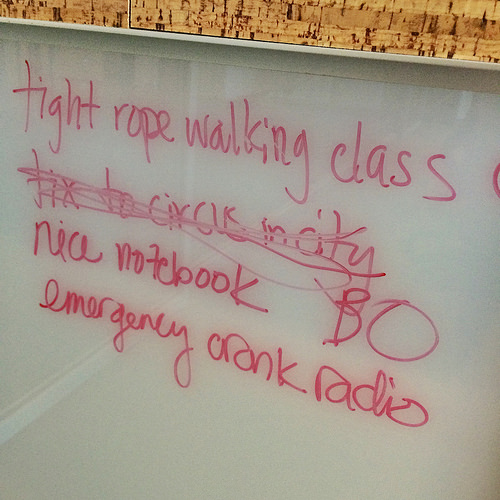 tight rope walking class
tix to circus in city
nice notebook
BO
emergency crank radio